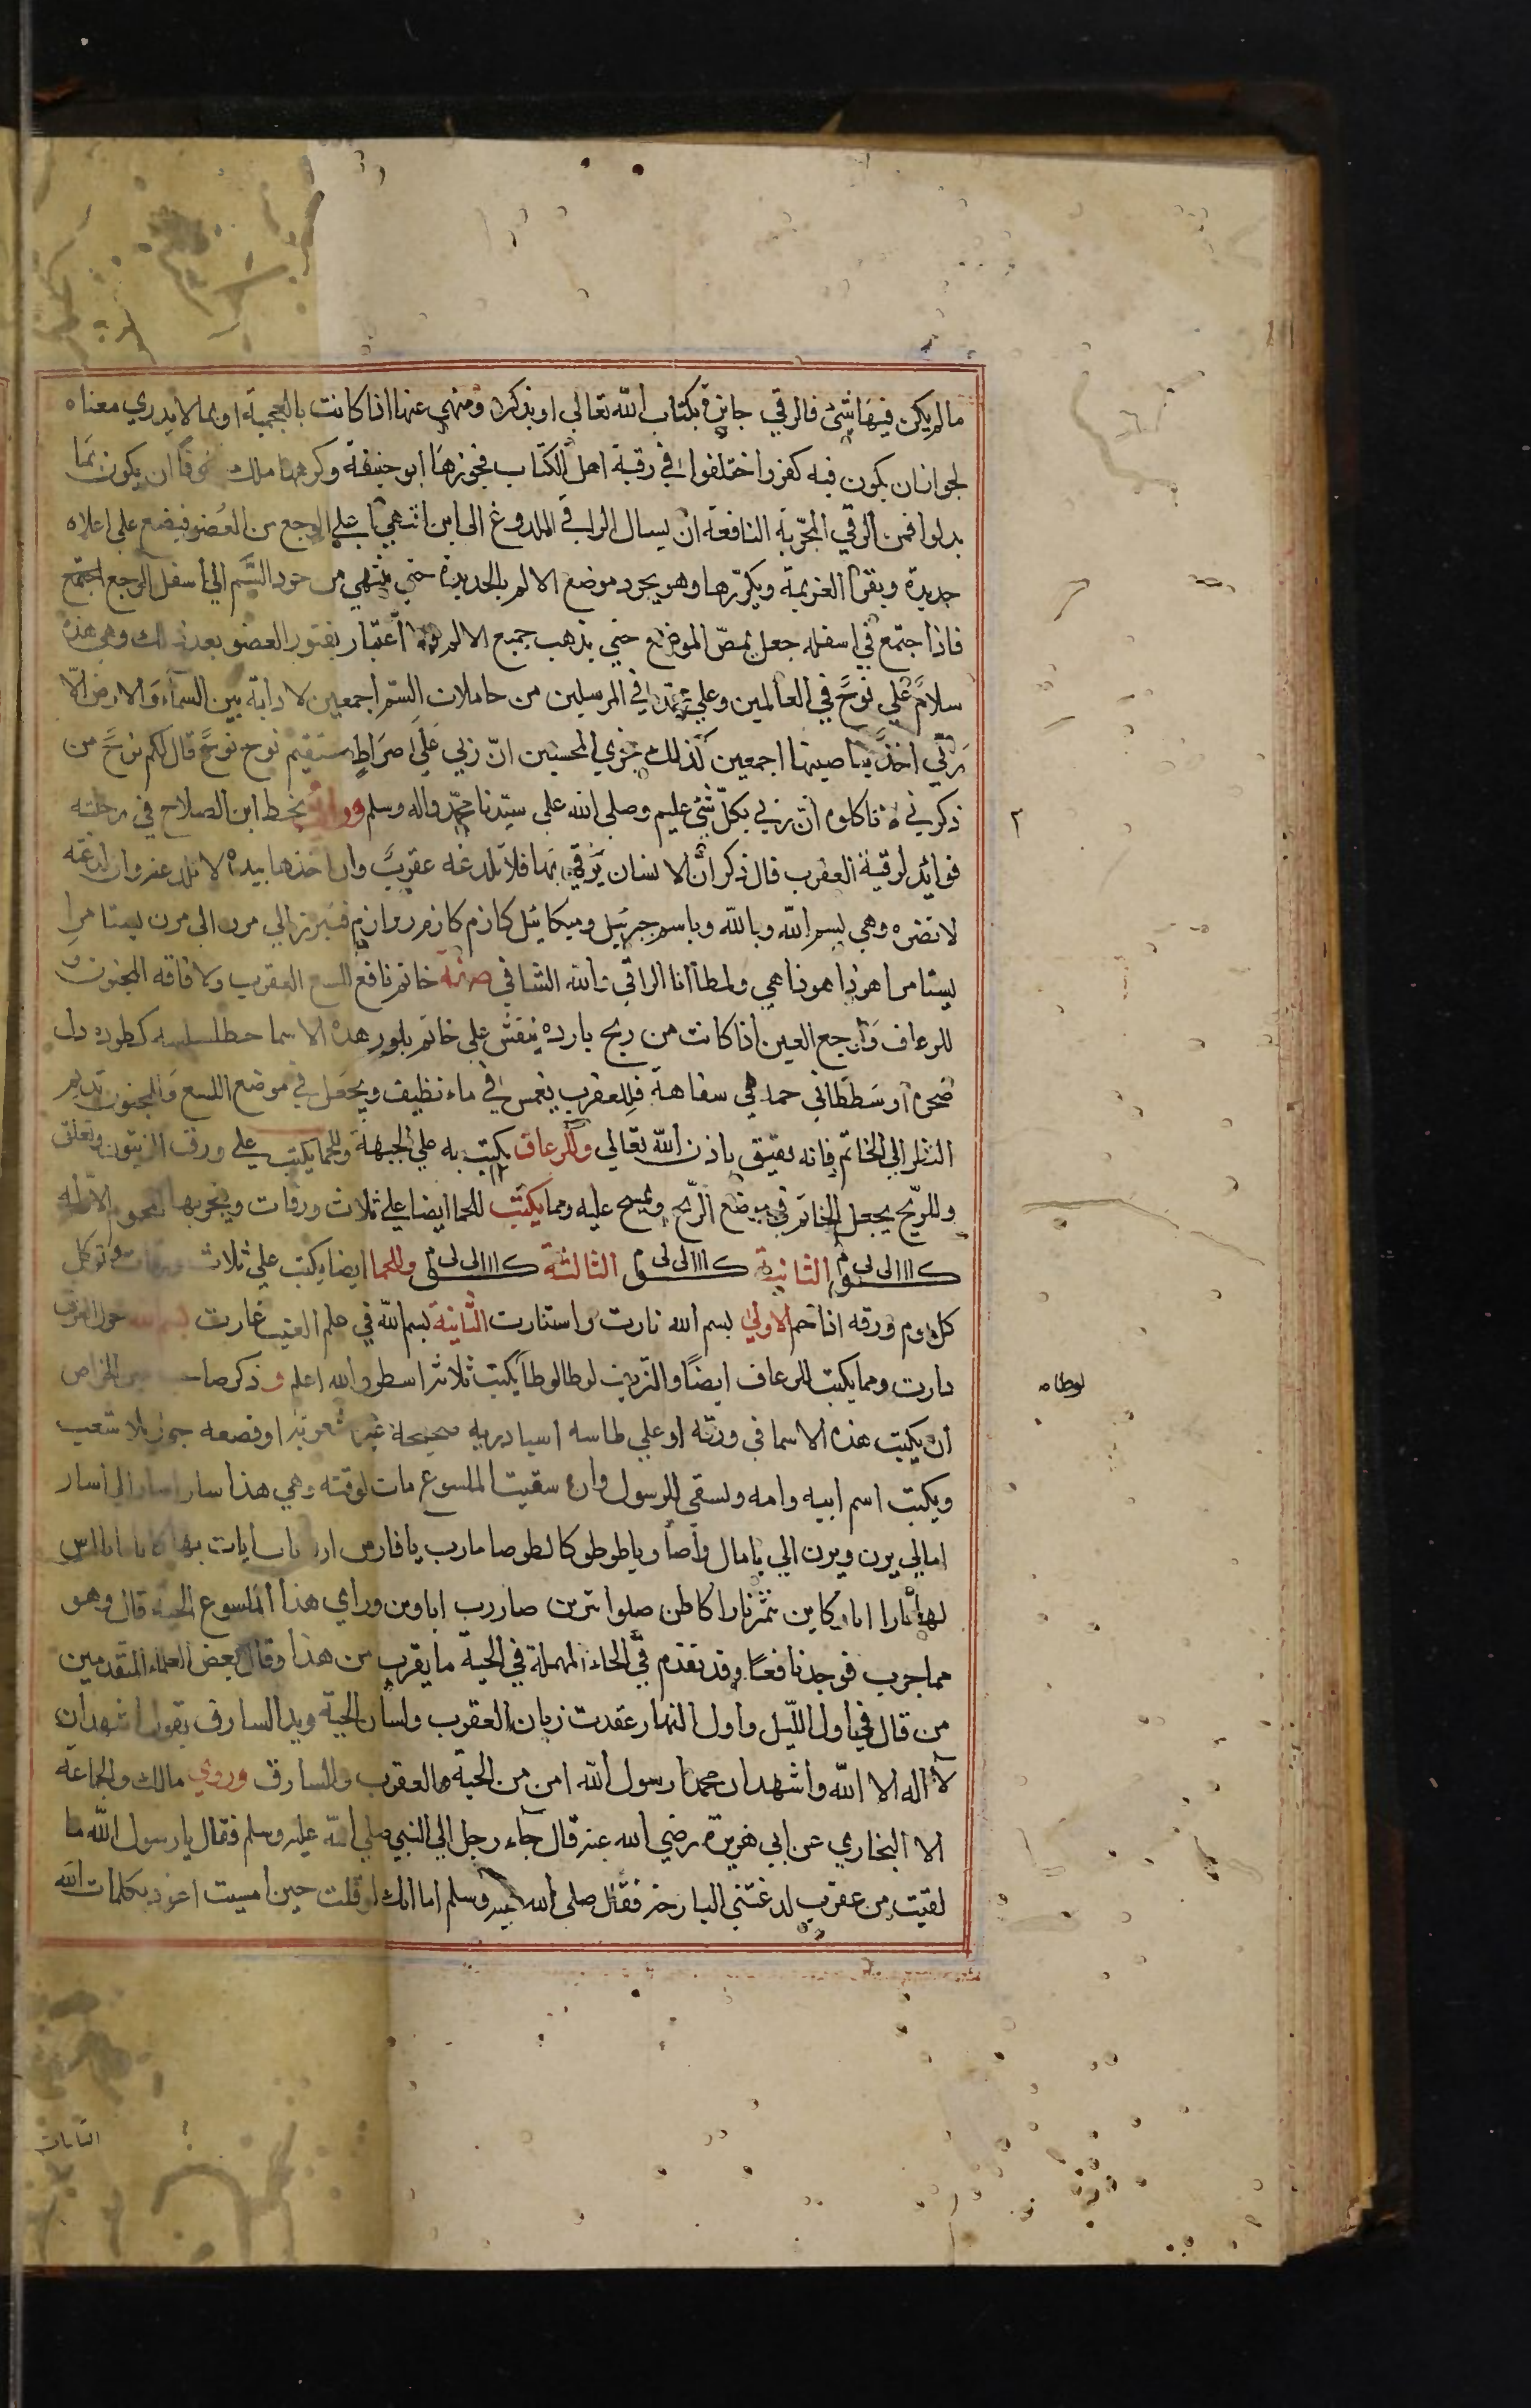 ما لم يكن فيها شئ فالرقي جايزة بكتاب الله تعالي او بذكره ومنهي عنها اذا كانت بالعجمية او بما لا يدري معناه
لجواز ان يكون فيه كفر واختلفوا في رقية اهل الكتاب فجوزها ابو حنيفة وكرهها مالك خوفا ان يكون بما
بدلوا فمن الرقي المجربة النافعة ان يسال الراقي الملدوغ الى اين انتهي الوجع من العضو فيضع على اعلاه
حديدة ويقرا العزيمة ويكررها وهو يجرد موضع الالم بالحديدة حتي ينتهي من جرد السم الي اسفل الوجع اجتمع
فاذا اجتمع في اسفله جعل يمص الموضع حتي يذهب جميع الالم ولا اعتبار بفتور العضو بعد ذلك وهي هذه
سلام علي نوح في العالمين وعلي محمد في المرسلين من حاملات السم اجمعين لا دابة بين السماء والارض الا
ربي اخذ بناصيتها اجمعين كذلك نجزي المحسنين ان ربي علي صراط مستقيم نوح نوح قال لكم نوح من
ذكرني لا تاكلوه ان ربي بكل شئ عليم وصلى الله على سيدنا محمد واله وسلم ورايت بخط ابن الصلاح في رحلته
فوائد لرقية العقرب قال ذكر ان الانسان يرقي بها فلا تلدغه عقرب وان اخذها بيده لا تلدغه وان لدغته
لا تضره وهي بسم الله وبالله وباسم جبرئيل وميكائيل كازم كازم رواذم فتبرز الي مرن الى مرن يشتامرا
يشتامرا هوذا هوذا هي ولمطا انا الراقي والله الشافي صفة خاتم نافع للسع العقرب ولافاقه المجنون و
للرعاف ووجع العين اذا كانت من ريح بارده ينقش على خاتم بلور هذه الاسما
حمد هي سفاهة فللعقرب يغمس في ماء نظيف ويجعل في موضع اللسع وللمجنون تديم
النظر الي الخاتم فانه يفيق باذن الله تعالي وللرعاف يكتب به علي الجبهة وللحما يكتب علي ورق الزيتون وتعلق
وللريح يجعل الخاتم في موضع الريح ويمسح عليه ومما يكتب للحما ايضا علي ثلاث ورقات ويبخر بها المحموم الاولي
الثانية الثالثة وللحما ايضا يكتب علي ثلاث ورقات وتوكل
كل يوم ورقه اذا حم الاولي بسم الله نارت واستنارت الثانية بسم الله في علم الغيب غارت بسم الله حول العرش
دارت ومما يكتب للرعاف ايضا والنزيف لوطا لوطا يكتب ثلاثة اسطر والله اعلم وذكر صاحب عين الخواص
ان يكتب هذه الاسما في ورقه او علي طاسه صحيحة غير
ويكتب اسم ابيه وامه ويسقي للرسول وان سقيت الملسوع مات لوقته وهي هذا سارا سارا الي اسار
امالي يرن ويرن الي يامال واصا وياطوطو كالطوصا مارب يافارس
لهوا نارا اباه كاين نمثرنارا كاطن صلوا تبرين صاررب اباوين وراي هذا الملسوع الحية قال وهو
مما جرب فوجد نافعا وقد تقدم في الحاء المهملة في الحية ما يقرب من هذا وقال بعض العلماء المتقدمين
من قال في اول الليل واول النهار عقدت زبان العقرب ولسان الحية ويد السارق بقول اشهد ان
لا اله الا الله واشهد ان محمدا رسول الله امن من الحية والعقرب والسارق وروي مالك والجماعة
الا البخاري عن ابي هريرة رضي الله عنه قال جاء رجل الي النبي صلي الله عليه وسلم فقال يا رسول الله ما
لقيت من عقرب لدغتني البارحة فقال صلى الله عليه وسلم اما انك لو قلت حين امسيت اعوذ بكلمات الله
٢
لوطا ه
التامات